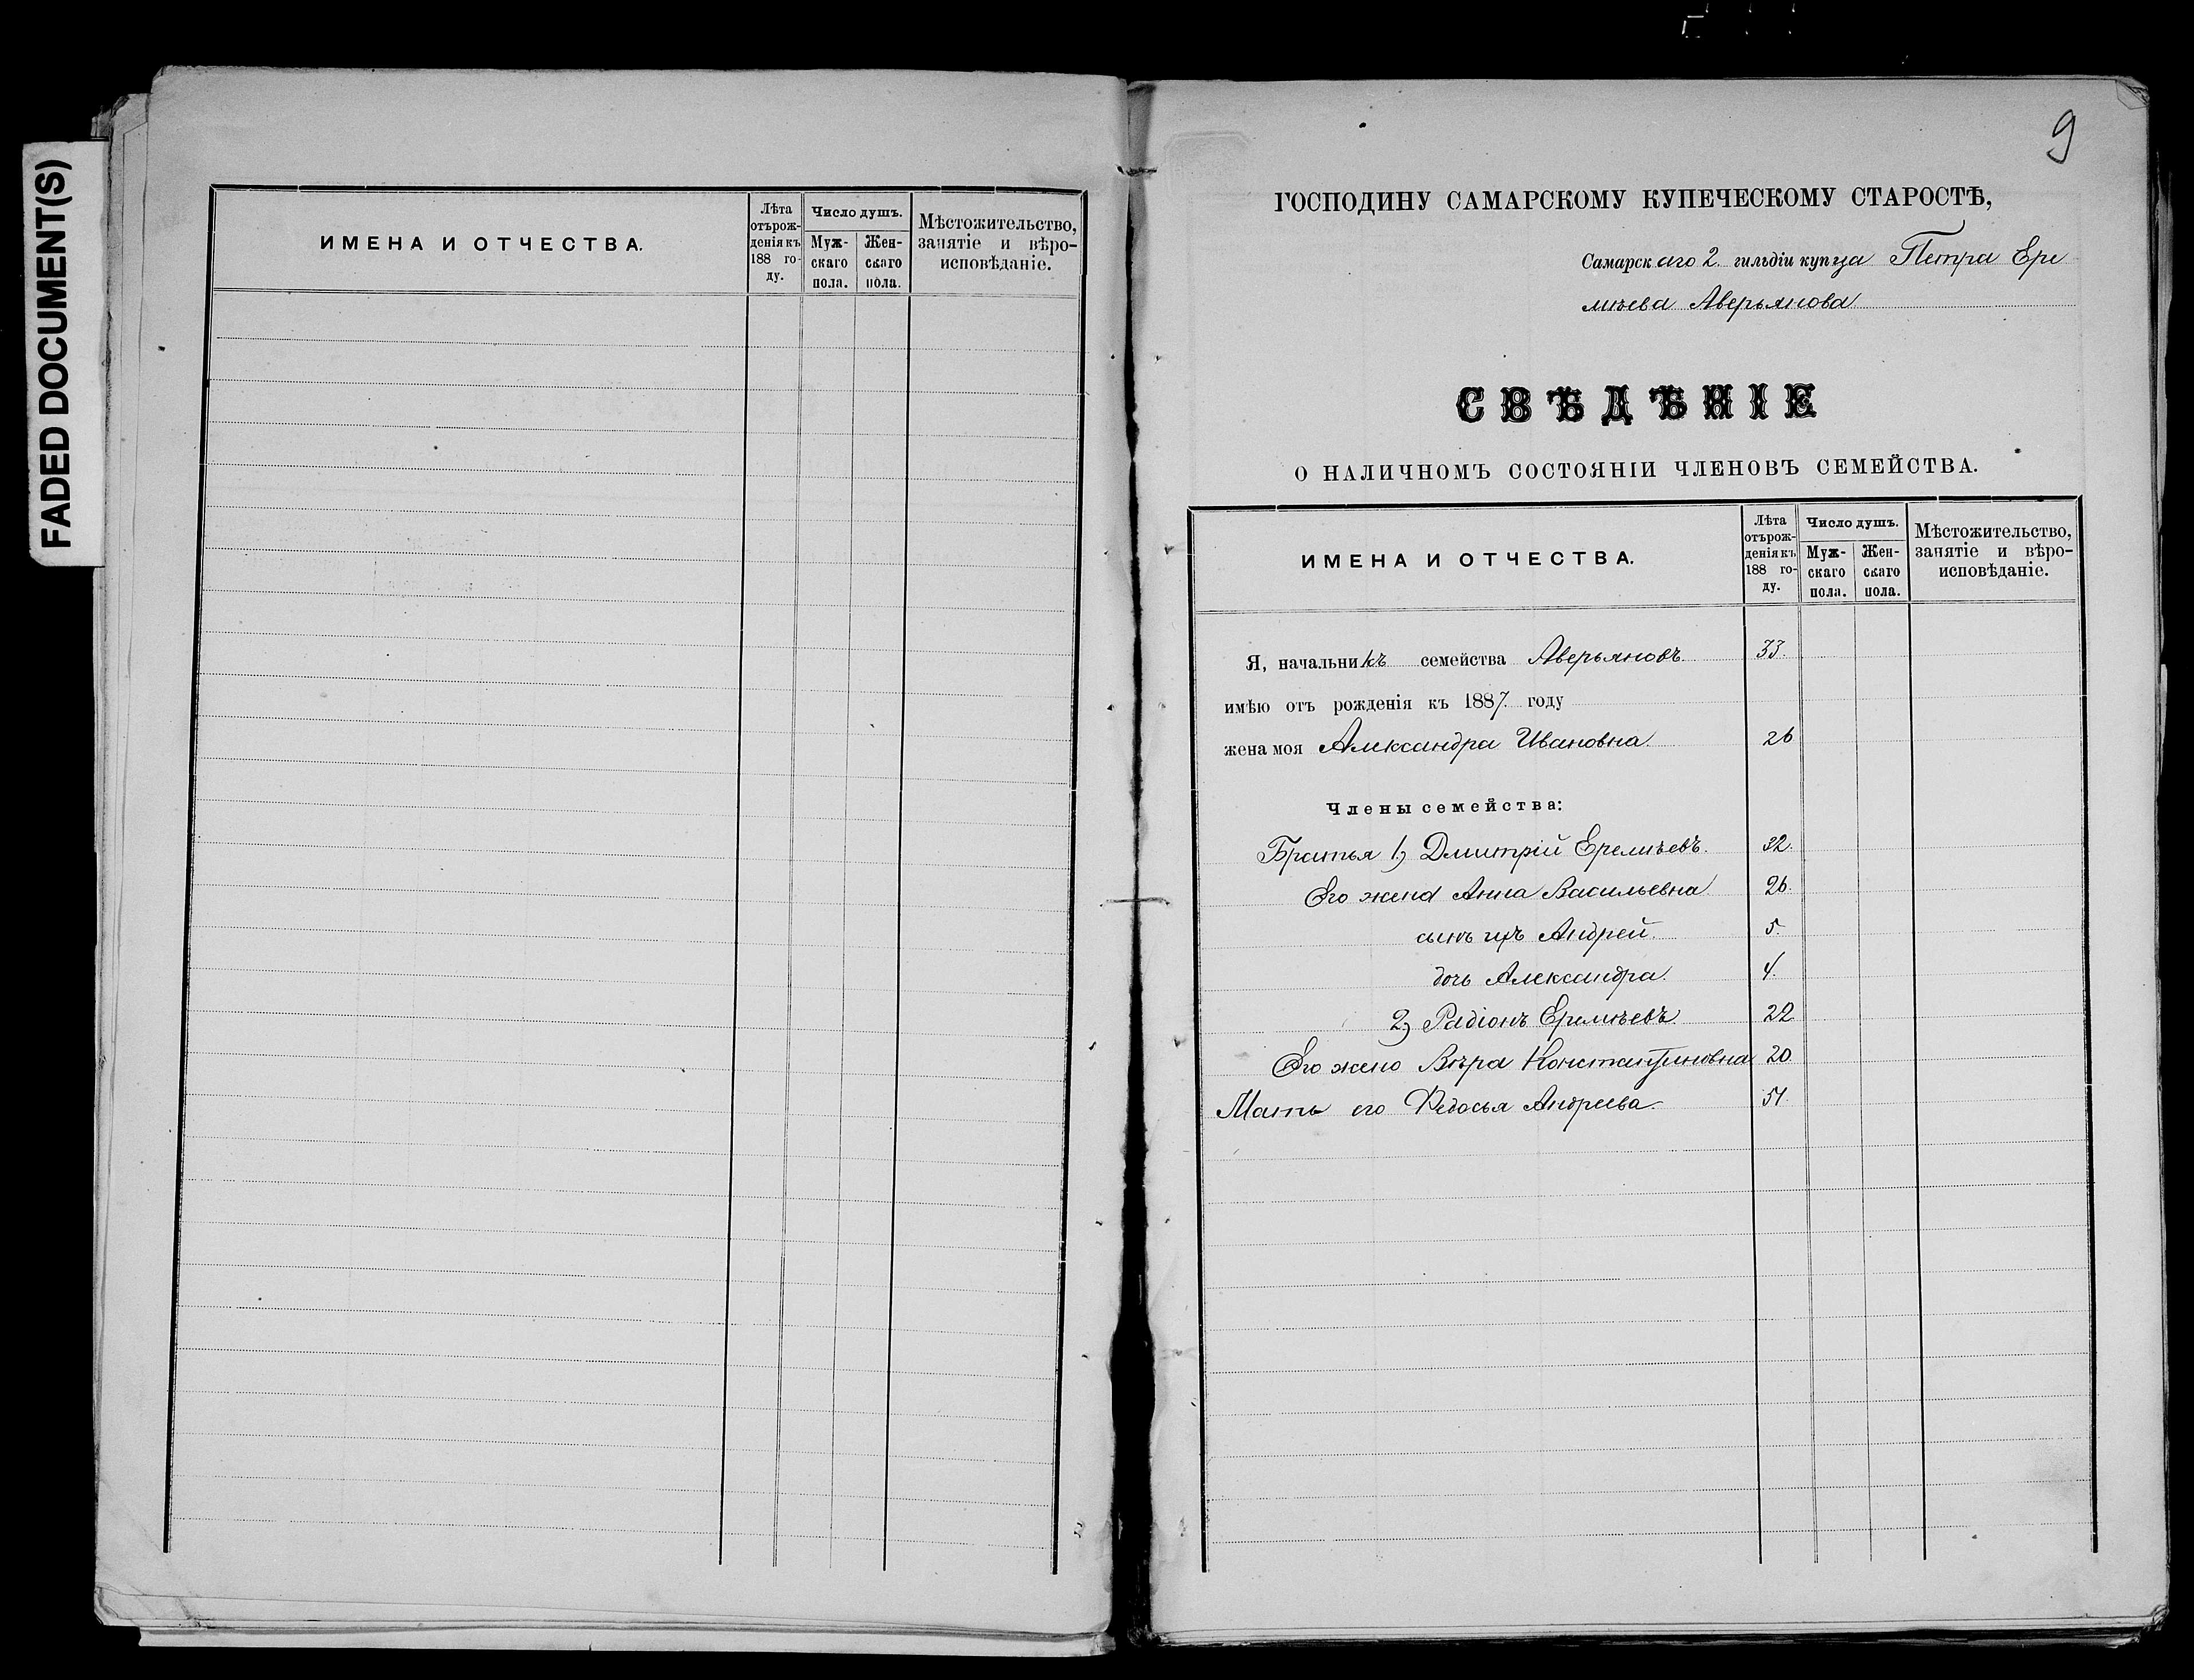 FADED DOCUMENT(S)
ИМЕНА И ОТЧЕСТВА.
Лѣта
отърож-
деніякъ
188 го-
ду.
Число душъ.
Муж-
скаго
пола.
Жен-
скаго
пола.
Мѣстожительство,
занятіе и вѣро-
исповѣданіе.
9
ГОСПОДИНУ САМАРСКОМУ КУПЕЧЕСКОМУ СТАРОСТѢ,
Самарскаго 2 гильдіи купца Петра Ере
мѣева Аверьянова
СВѢДѢНІЕ
О НАЛИЧНОМЪ СОСТОЯНІИ ЧЛЕНОВЪ СЕМЕЙСТВА.
ИМЕНА И ОТЧЕСТВА.
Лѣта
отърож-
деніякъ
188 го-
ду.
Число душъ.
Муж-
скаго
пола.
Жен-
скаго
пола.
Мѣстожительство,
занятіе и вѣро-
исповѣданіе.
Я, начальникъ семейства Аверьяновъ 33.
имѣю отъ рожденія къ 1887. году
жена моя Александра Ивановна. 26
Члены семейства:
Братья 1) Дмитрій Еремѣевъ. 32.
Его жена Анна Васильевна 26.
сынъ ихъ Андрей. 5.
дочь Александра. 4.
2) Радіонъ Еремѣевъ. 22
Его жено Вѣра Константиновна 20
Мать его Ѳедосья Андреева. 51.